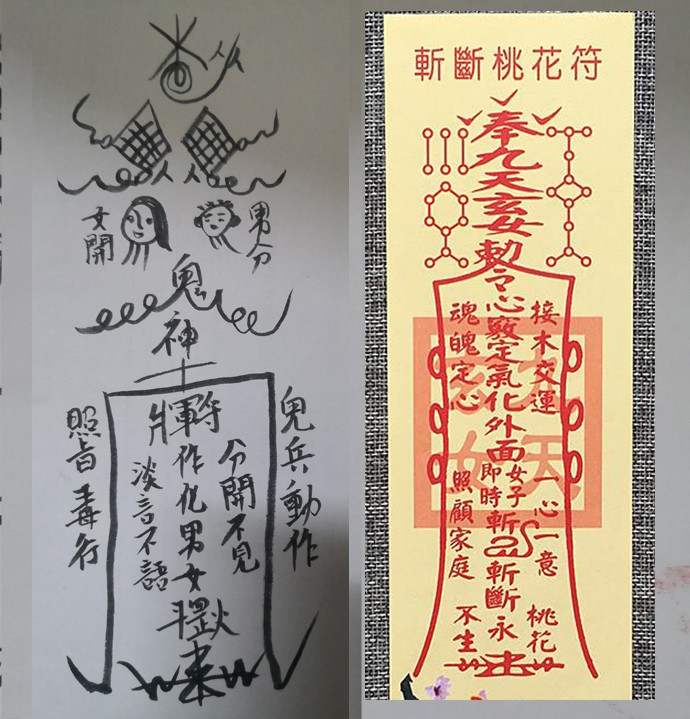 女開
男分
鬼
神
鬼兵動作
分開不見
符
作化男女
淡言不語
照旨奉行
斬斷桃花符
奉九天玄女勅令心竅定氣化外面女子即時斬斬斷永
接木交運
一心一意
桃花
魂魄定心
照顧家庭
不生
九天
玄女